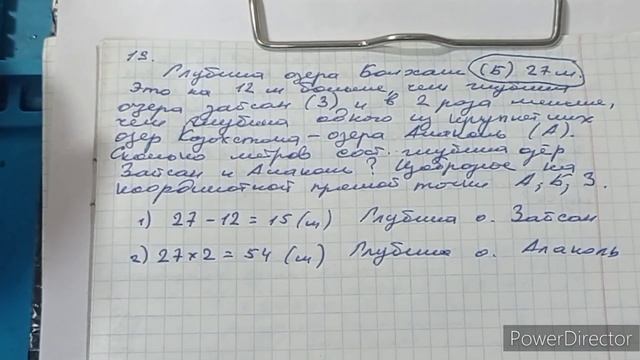 13.
Глубина озера Балхаш (Б) 27 м.
Это на 12 м больше, чем глубина
озера Зайсан (З) и в 2 раза меньше,
чем глубина одного из крупнейших
озер Казахстана – озера Алаколь (А).
Сколько метров сост. глубина озер
Зайсан и Алаколь? Изобразите на
координатной прямой точки А, Б, З.
1) 27 - 12 = 15 (м) Глубина о. Зайсан
2) 27 × 2 = 54 (м) Глубина о. Алаколь
PowerDirector